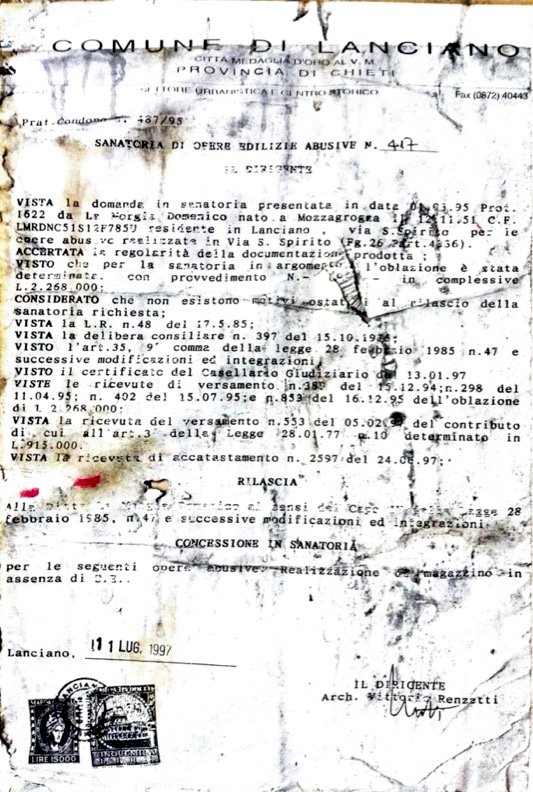 COMUNE DI LANCIANO
CITTÀ MEDAGLIA D'ORO AL V. M.
PROVINCIA DI CHIETI
SETTORE URBANISTICA E CENTRO STORICO
Fax (0872) 40443
Prat. Condono n. 487/95
SANATORIA DI OPERE EDILIZIE ABUSIVE N. 417
IL DIRIGENTE
VISTA la domanda in sanatoria presentata in data 01.03.95 Prot.
1622 da La Morgia Domenico nato a Mozzagrogna il 12.11.51 C.F.
residente in Lanciano , via S.Spirito per le
opere abusive realizzate in Via S. Spirito (Fg.26 Part.4236).
ACCERTATA la regolarità della documentazione prodotta ;
VISTO che per la sanatoria in argomento l'oblazione è stata
determinata, con provvedimento N.- - in complessive
L.2.268.000;
CONSIDERATO che non esistono motivi ostativi al rilascio della
sanatoria richiesta;
VISTA la L.R. n.48 del 17.5.85;
VISTA la delibera consiliare n. 397 del 15.10.1985;
VISTO l'art.35, 9° comma della legge 28 febbraio 1985 n.47 e
successive modificazioni ed integrazioni;
VISTO il certificato del Casellario Giudiziario del 13.01.97
VISTE le ricevute di versamento n.389 del 15.12.94;n.298 del
11.04.95; n. 402 del 15.07.95;e n.853 del 16.12.95 dell'oblazione
di L.2.268.000;
VISTA la ricevuta del versamento n.553 del 05.02.97 del contributo
di cui all'art.3 della Legge 28.01.77 n.10 determinato in
L.915.000.
VISTA la ricevuta di accatastamento n. 2597 del 24.06.97;
RILASCIA
Alla ditta La Morgia Domenico ai sensi del Capo della Legge 28
febbraio 1985, n.47 e successive modificazioni ed integrazioni,
CONCESSIONE IN SANATORIA
per le seguenti opere abusive: Realizzazione di magazzino in
assenza di C.E..
Lanciano, 11 LUG. 1997
IL DIRIGENTE
Arch. Vittorio Renzetti
LANCIANO
LIRE 15000